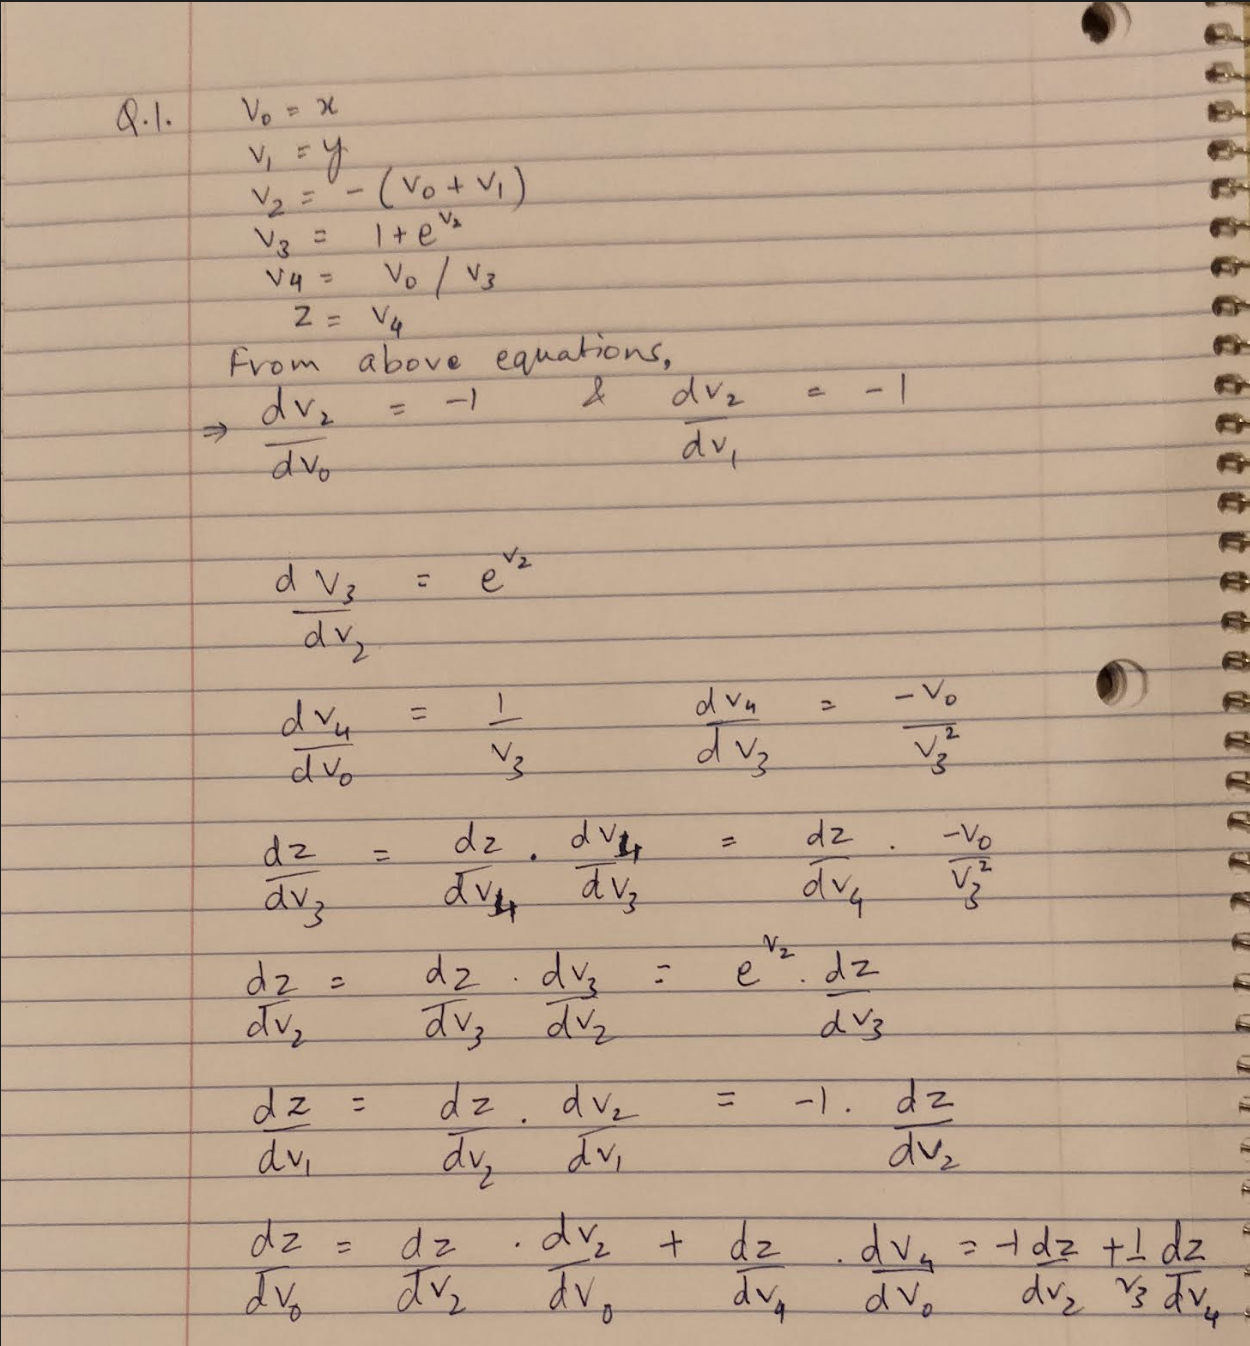 Q.1. v₀ = x
v₁ = y
v₂ = -(v₀ + v₁)
v₃ = 1 + e^v₂
v₄ = v₀ / v₃
z = v₄
From above equations,
⇒ dv₂/dv₀ = -1 & dv₂/dv₁ = -1
dv₃/dv₂ = e^v₂
dv₄/dv₀ = 1/v₃ dv₄/dv₃ = -v₀/v₃²
dz/dv₃ = dz/dv₄ · dv₄/dv₃ = dz/dv₄ · -v₀/v₃²
dz/dv₂ = dz/dv₃ · dv₃/dv₂ = e^v₂ · dz/dv₃
dz/dv₁ = dz/dv₂ · dv₂/dv₁ = -1 · dz/dv₂
dz/dv₀ = dz/dv₂ · dv₂/dv₀ + dz/dv₄ · dv₄/dv₀ = -1 dz/dv₂ + 1/v₃ dz/dv₄